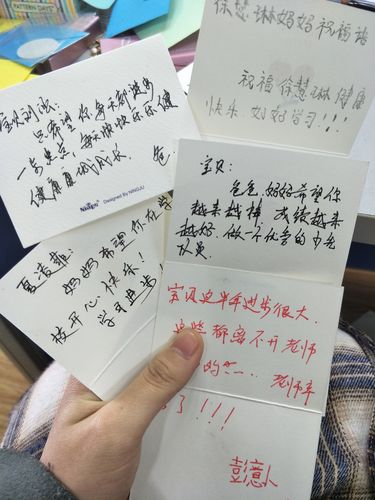 徐慧琳妈妈祝福语
祝福徐慧琳健康
快乐,好好学习!!!
只希望你每天都进步
一步点,每天快快乐乐健
健康康成长。爸
NINGJU Designed By NINGJU
宝贝:
爸爸,妈妈希望你
越来越棒 成绩越来
越好.做一个优秀的少先
队员.
妈妈希望你在学
校开心快乐!
学习进步!
宝贝这半年进步很大.
这些都离不开老师
的 老师辛
了!!!